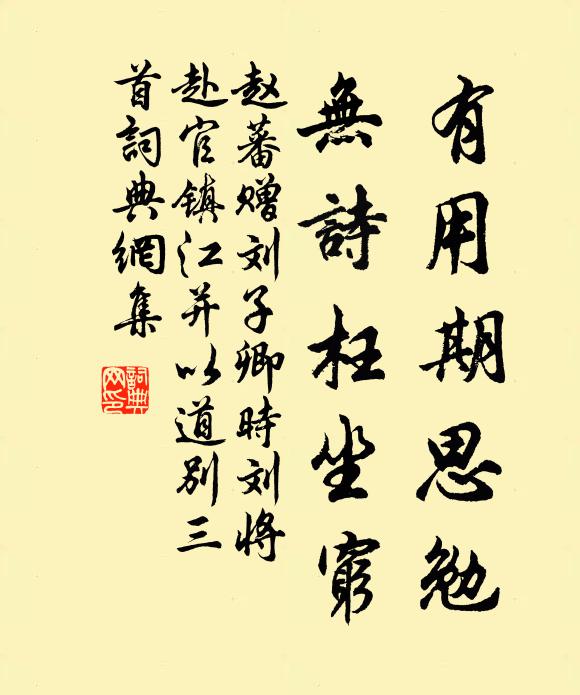 有用期思勉
無詩枉坐窮
赵蕃赠刘子卿時刘将
赴官镇江并以道别三
首詞典網集
詞典
网印